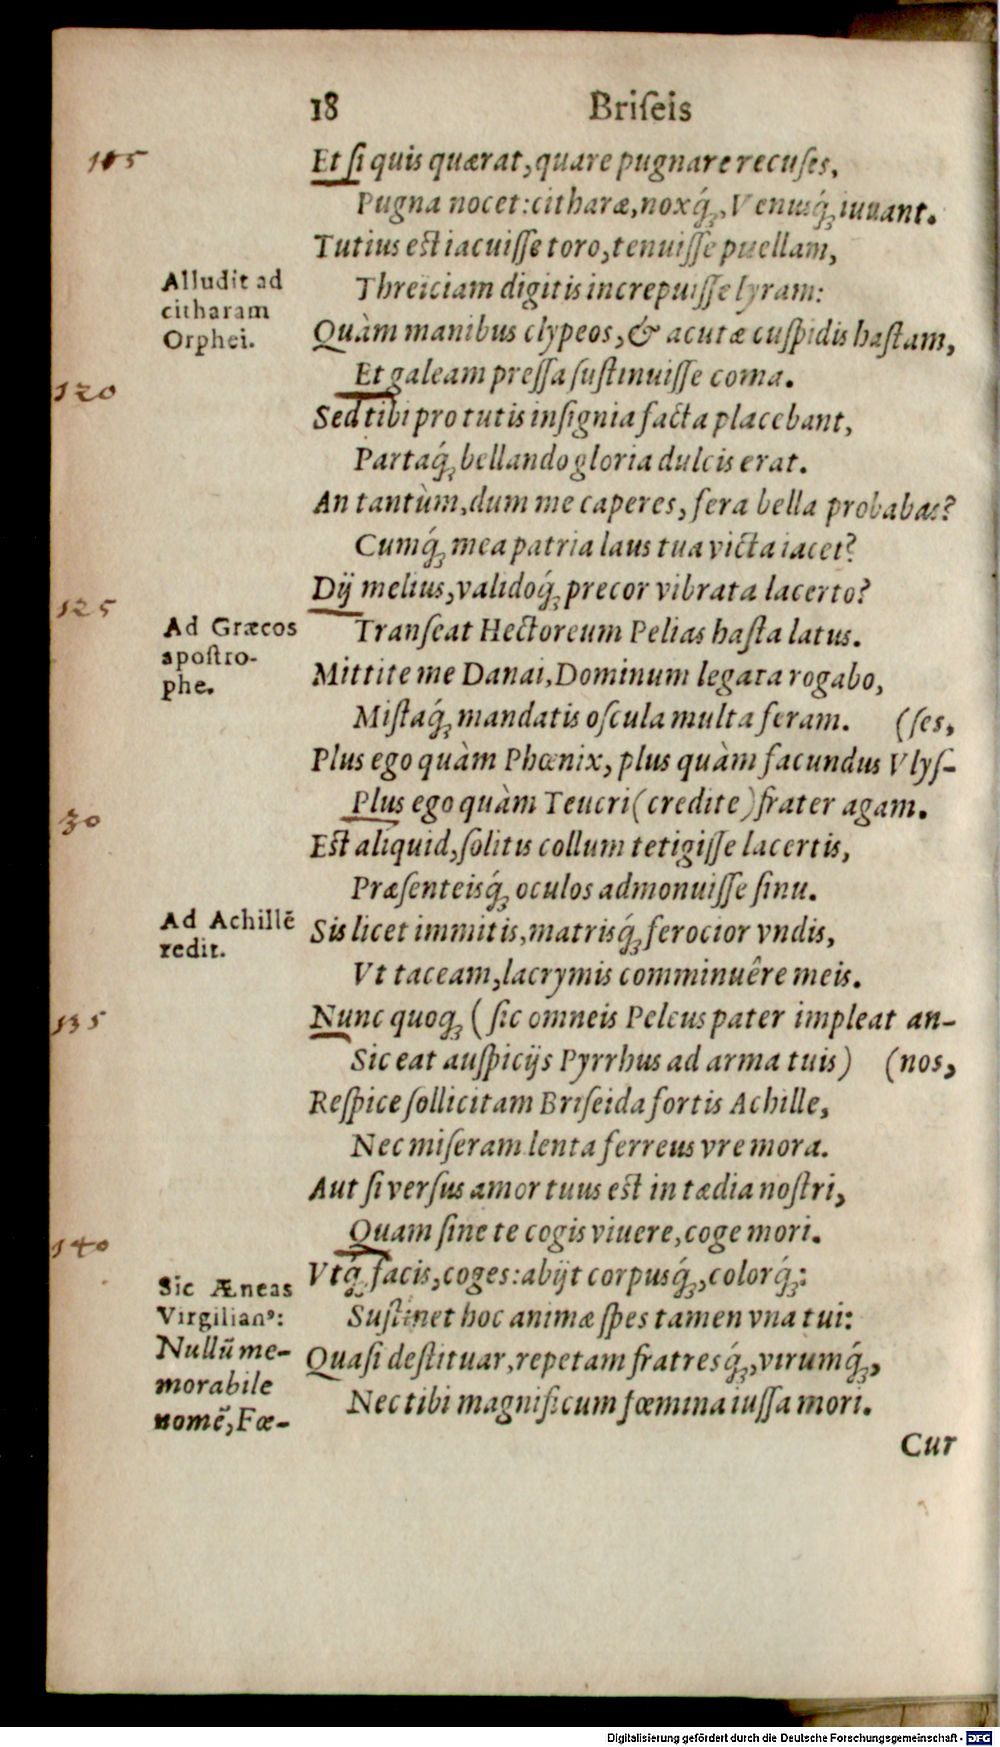 18 Briſeis
115
Et ſi quis quærat, quare pugnare recuſes,
Pugna nocet: citharæ, noxq́;, Venusq́; iuuant.
Tutius est iacuiſſe toro, tenuiſſe puellam,
Alludit ad
citharam
Orphei.
Threiciam digitis increpuiſſe lyram:
Quàm manibus clypeos, & acutæ cuſpidis haſtam,
120
Et galeam preſſa ſuſtinuiſſe coma.
Sed tibi pro tutis inſignia facta placebant,
Partaq́; bellando gloria dulcis erat.
An tantùm, dum me caperes, fera bella probabas?
Cumq́; mea patria laus tua victa iacet?
125
Dij melius, validoq́; precor vibrata lacerto?
Ad Græcos
apoſtro-
phe.
Tranſeat Hectoreum Pelias haſta latus.
Mittite me Danai, Dominum legata rogabo,
Miſtaq́; mandatis oſcula multa feram. (ſes,
Plus ego quàm Phœnix, plus quàm facundus Vlyſ-
30
Plus ego quàm Teucri (credite) frater agam.
Est aliquid, ſolitis collum tetigiſſe lacertis,
Præſenteisq́; oculos admonuiſſe ſinu.
Ad Achillẽ
redit.
Sis licet immitis, matrisq́; ferocior vndis,
Vt taceam, lacrymis comminuêre meis.
135
Nunc quoq; (ſic omneis Peleus pater impleat an-
Sic eat auſpicijs Pyrrhus ad arma tuis) (nos,
Reſpice ſollicitam Briſeida fortis Achille,
Nec miſeram lenta ferreus vre mora.
Aut ſi verſus amor tuus est in tædia noſtri,
140
Quam ſine te cogis viuere, coge mori.
Vtq́; facis, coges: abijt corpusq́;, colorq́;:
Sic Æneas
Virgilianꝰ:
Nullũ me-
morabile
nomẽ, Fœ-
Suſtinet hoc animæ ſpes tamen vna tui:
Quaſi deſtituar, repetam fratresq́;, virumq́;,
Nec tibi magnificum fœmina iuſſa mori.
Cur
Digitalisierung gefördert durch die Deutsche Forschungsgemeinschaft - DFG